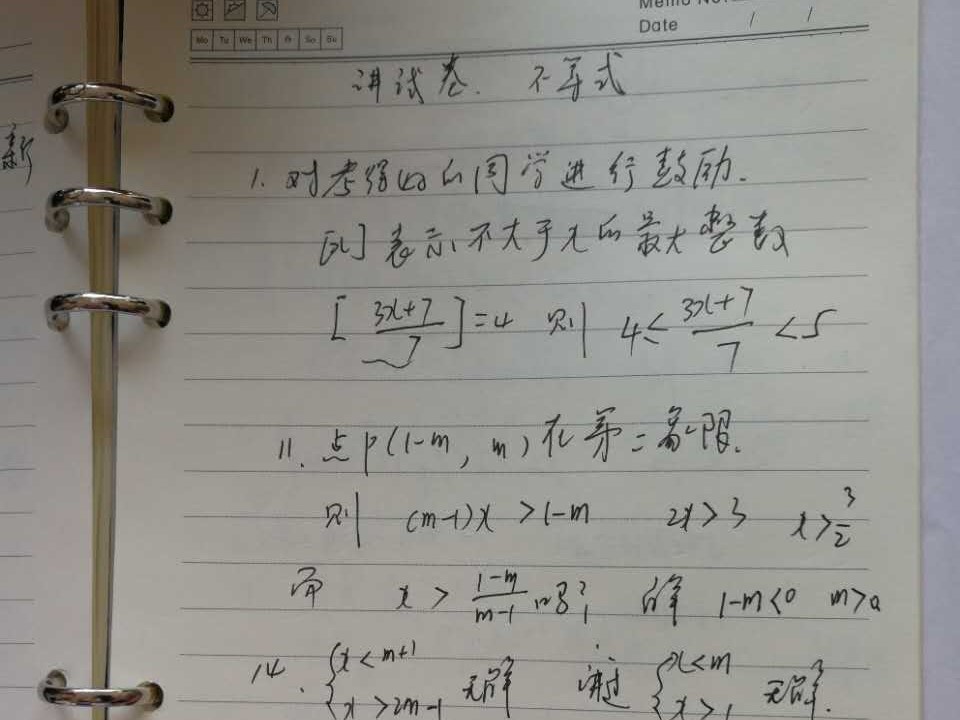 Memo No
Date / /
Mo Tu We Th Fr Sa Su
讲试卷. 不等式
新
1. 对考得好的同学进行鼓励.
[x]表示不大于x的最大整数
[(3x+7)/7]=4 则 4≤(3x+7)/7<5
11. 点P(1-m, m)在第二象限.
则 (m-1)x>1-m 2x>3 x>3/2
而 x>(1-m)/(m-1) 吗? 解 1-m<0 m>0
14. {x<m+1 x>2m-1 无解 讲过 {x<m x>1 无解.